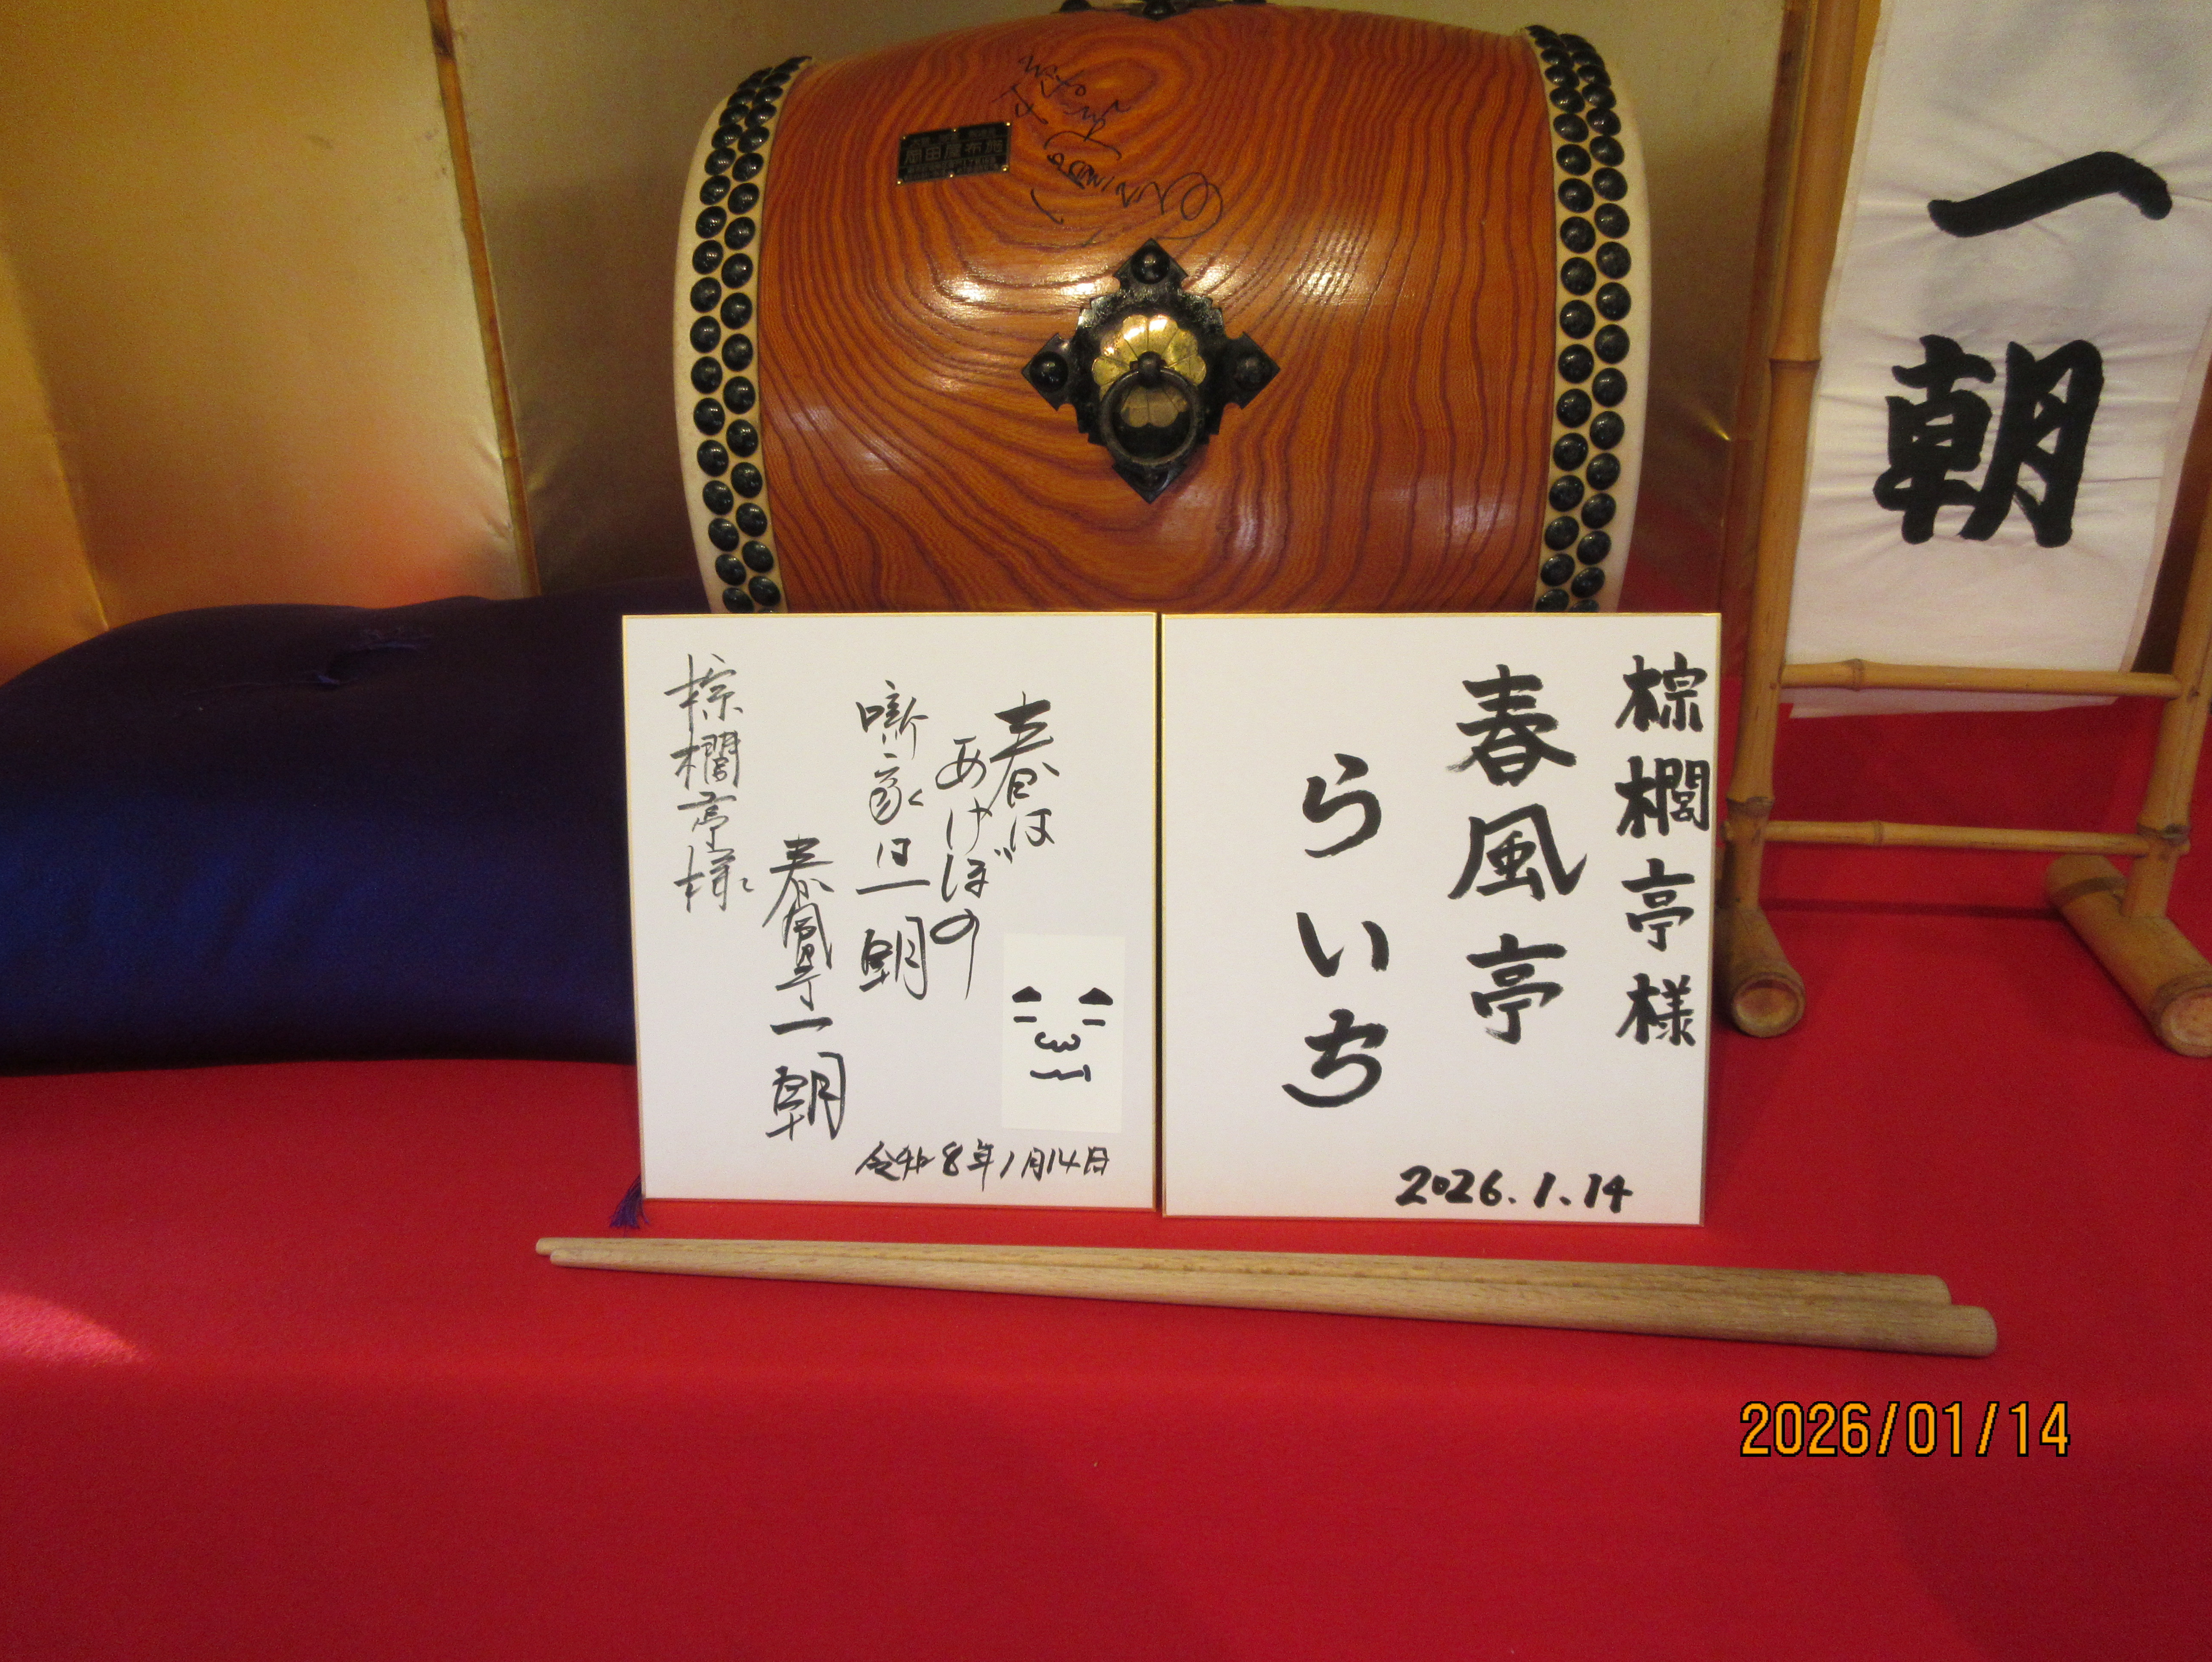 一朝
棕櫚亭様
春風亭
らいち
2026.1.14
春は
あけぼの
噺家は一朝
春風亭一朝
棕櫚亭様
令和8年1月14日
2026/01/14